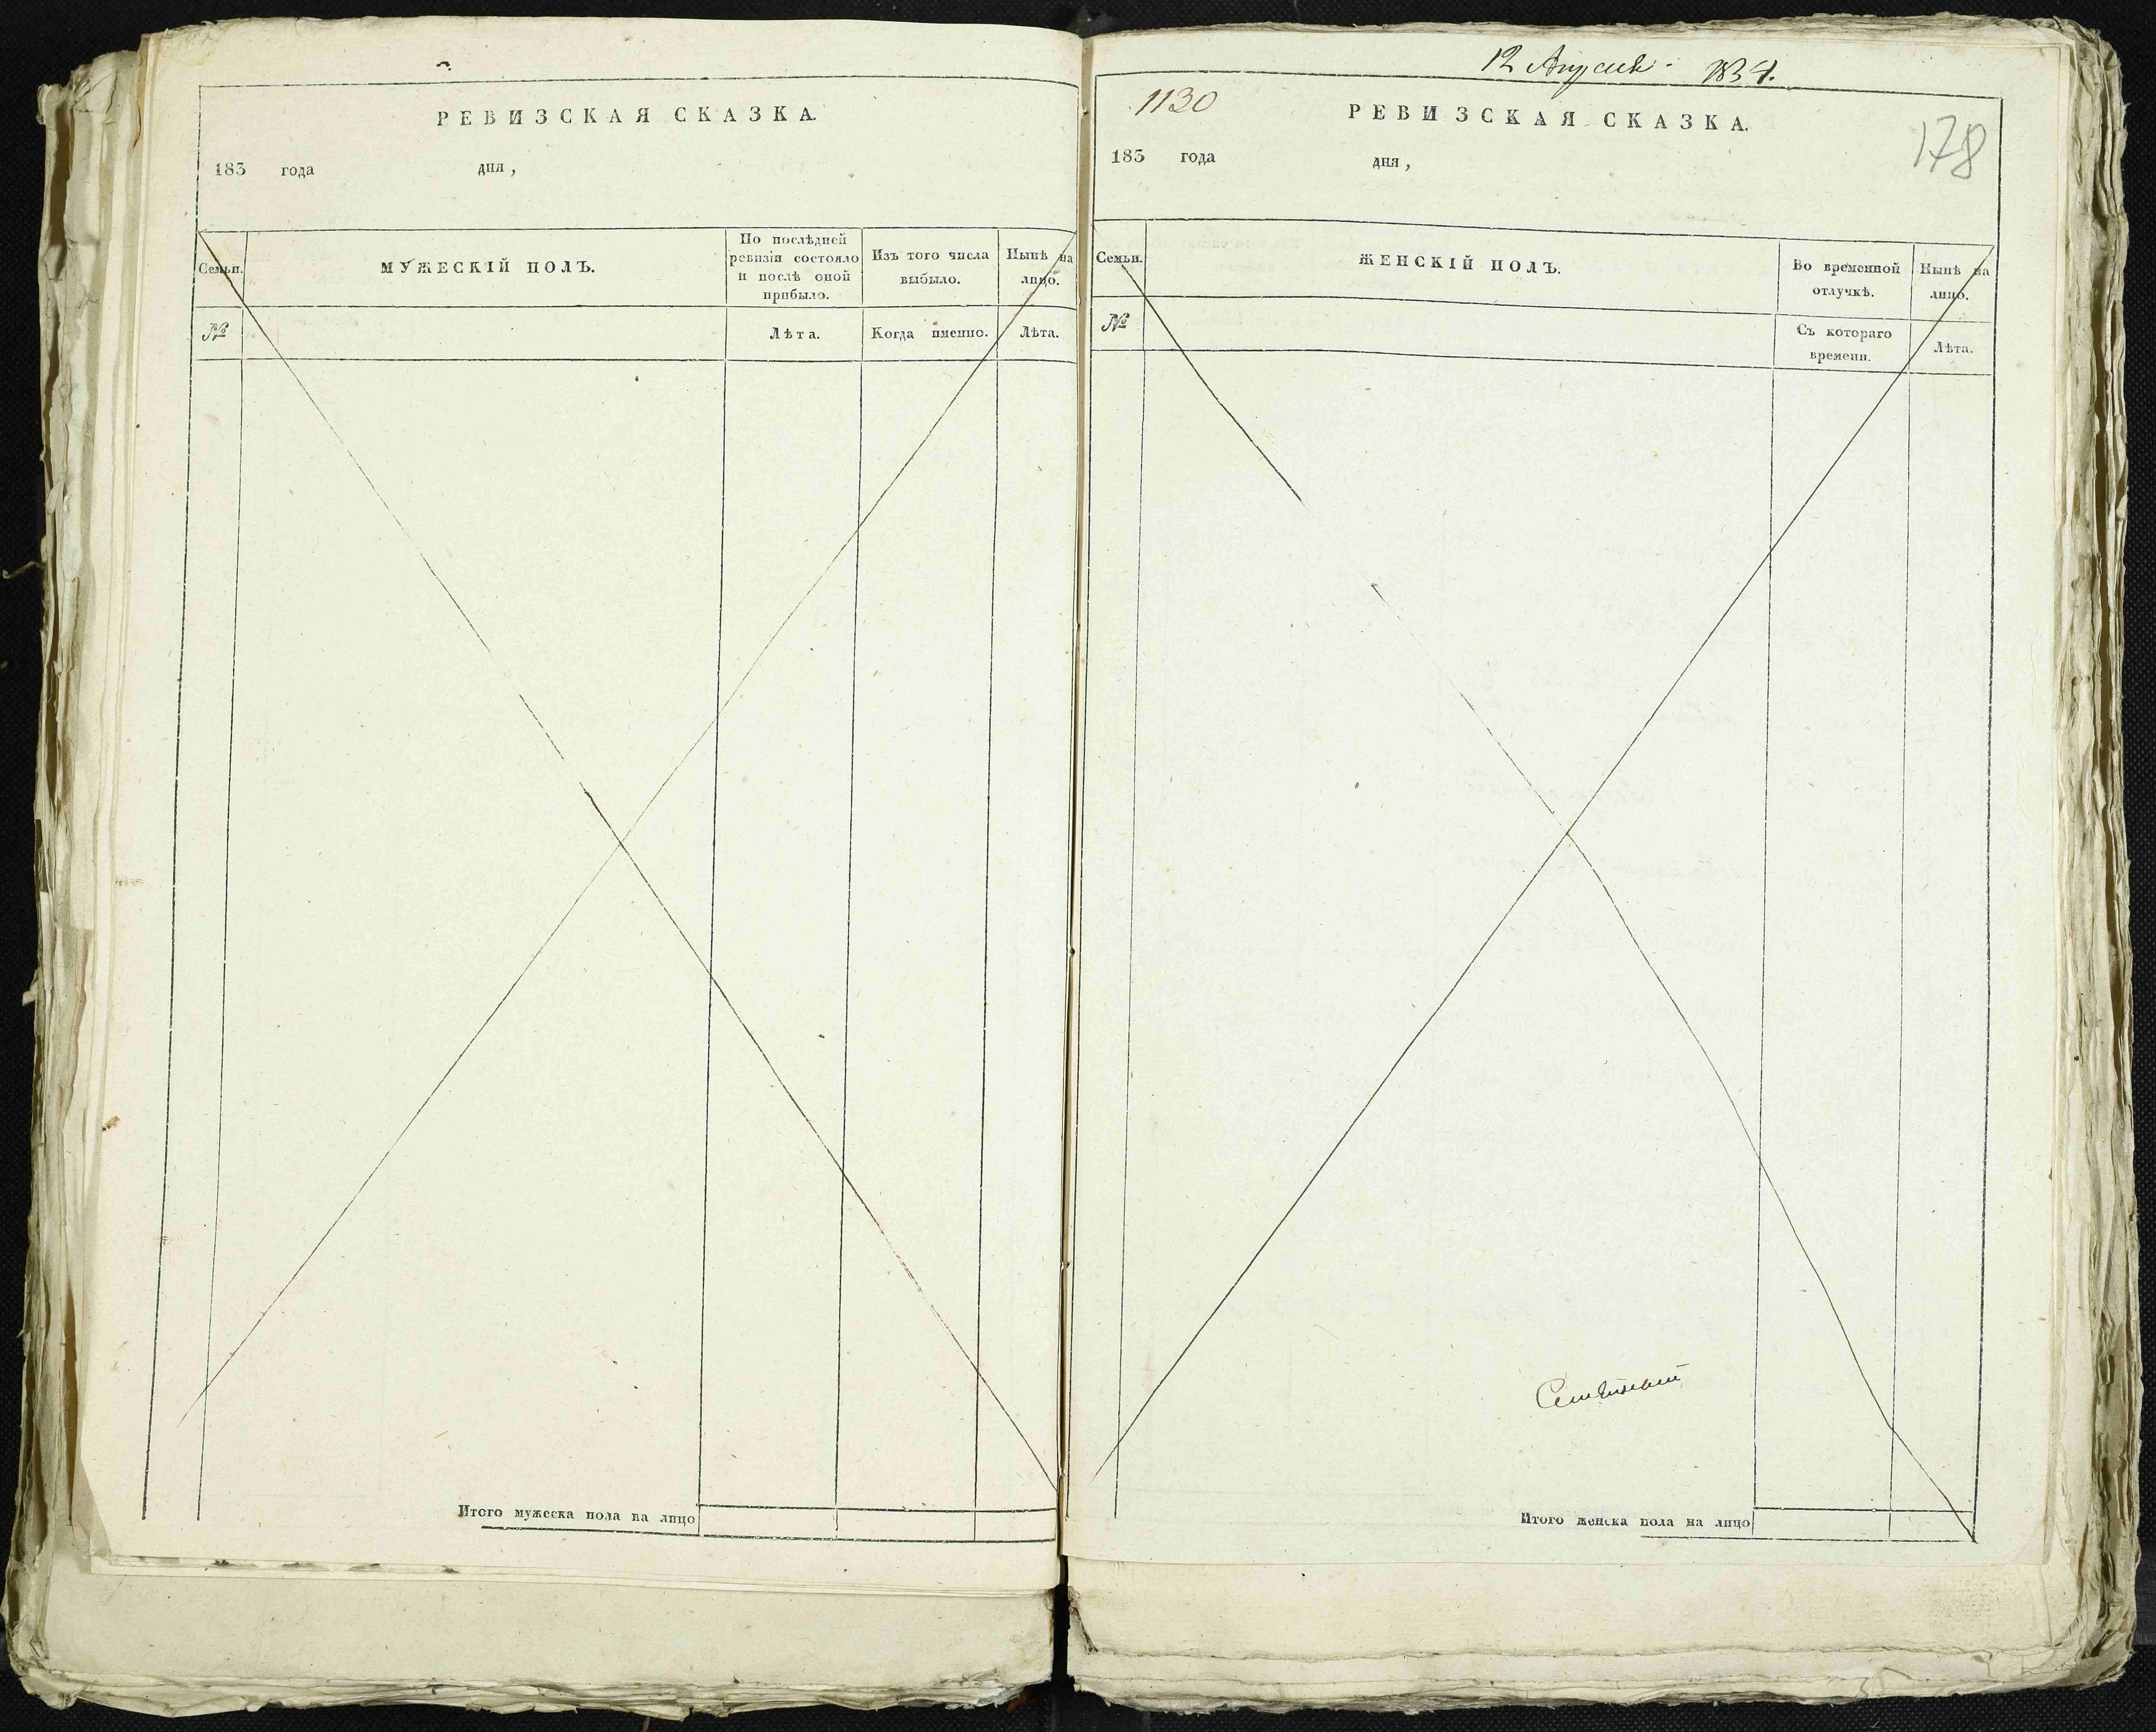 РЕВИЗСКАЯ СКАЗКА.
183 года дня,
Семьи.
МУЖЕСКІЙ ПОЛЪ.
По послѣдней
ревизіи состояло
и послѣ оной
прибыло.
Изъ того числа
выбыло.
Нынѣ на
лицо.
№
Лѣта.
Когда именно.
Лѣта.
Итого мужеска пола на лицо
12 Апреля 1834.
1130
РЕВИЗСКАЯ СКАЗКА.
178
183 года дня,
Семьи.
ЖЕНСКІЙ ПОЛЪ.
Во временной
отлучкѣ.
Нынѣ на
лицо.
№
Съ котораго
времени.
Лѣта.
Итого женска пола на лицо